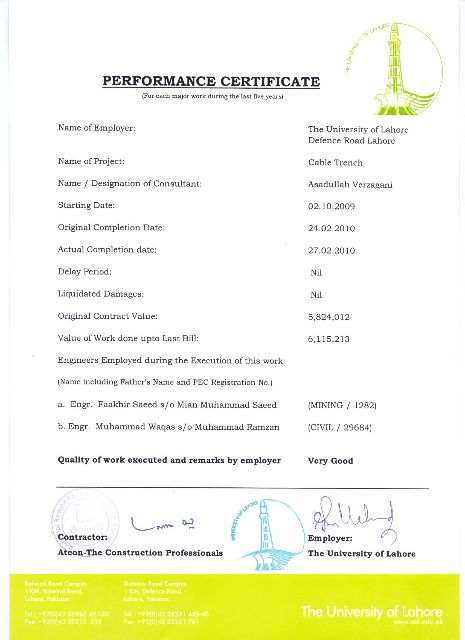 THE UNIVERSITY OF LAHORE
PERFORMANCE CERTIFICATE
(For each major work during the last five years)
Name of Employer: The University of Lahore
Defence Road Lahore
Name of Project: Cable Trench
Name / Designation of Consultant: Asadullah Verzagani
Starting Date: 02.10.2009
Original Completion Date: 24.02.2010
Actual Completion date: 27.02.2010
Delay Period: Nil
Liquidated Damages: Nil
Original Contract Value: 5,824,012
Value of Work done upto Last Bill: 6,115,213
Engineers Employed during the Execution of this work
(Name including Father's Name and PEC Registration No.)
a. Engr. Faakhir Saeed s/o Mian Muhammad Saeed (MINING / 1282)
b. Engr. Muhammad Waqas s/o Muhammad Ramzan (CIVIL / 29684)
Quality of work executed and remarks by employer Very Good
UNIVERSITY OF LAHORE
Contractor: Employer:
Atcon-The Construction Professionals The University of Lahore
Raiwind Road Campus Defence Road Campus
1-KM, Raiwind Road, 1-KM, Defence Road,
Lahore, Pakistan Lahore, Pakistan
The University of Lahore
www.uol.edu.pk